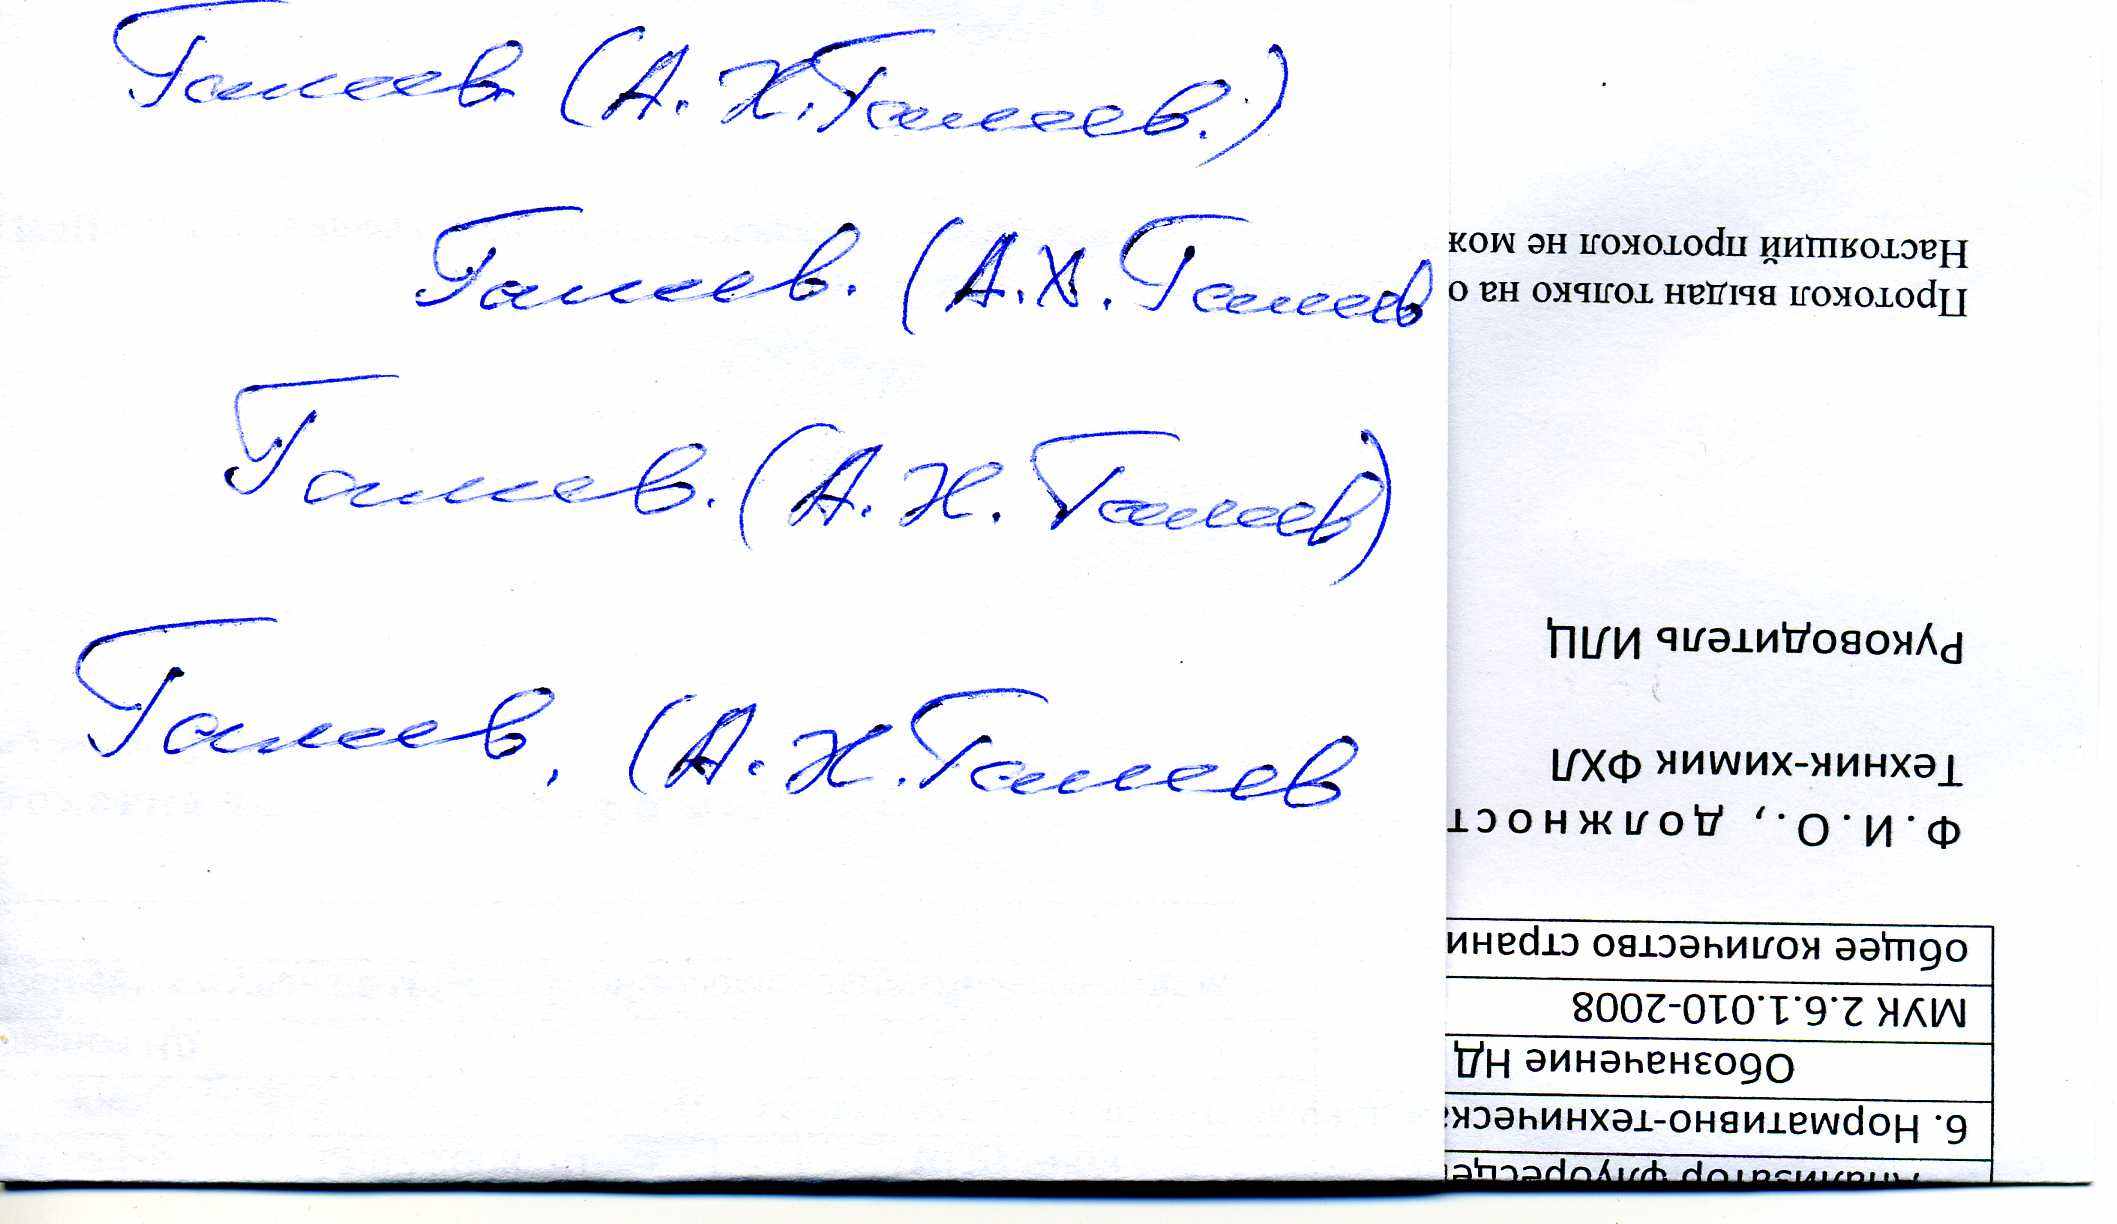 Галеев (А. Х. Галеев.)
Галеев. (А.Х. Галеев
Галеев. (А. Х. Галеев)
Галеев. (А. Х. Галеев
Анализатор флуоресце
6. Нормативно-техническа
Обозначение НД
МУК 2.6.1.010-2008
общее количество страни
Ф.И.О., должност
Техник-химик ФХЛ
Руководитель ИЛЦ
Протокол выдан только на о
Настоящий протокол не мож